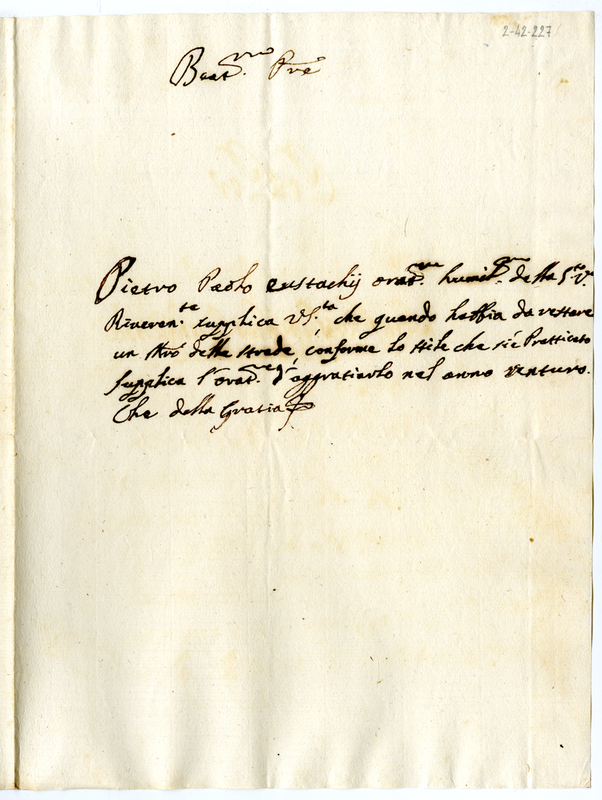 2-42-227
Beat.mo Pre
Pietro Paolo eustachij orat.re humil.mo della S.tà V.ra
Riveren.te supplica V.S.tà che quando habbia da restare
un Mro delle strade, conforme lo stile che sié Pratticato
supplica l'orat.re d'aggratiarlo nel anno venturo.
Che della Gratia